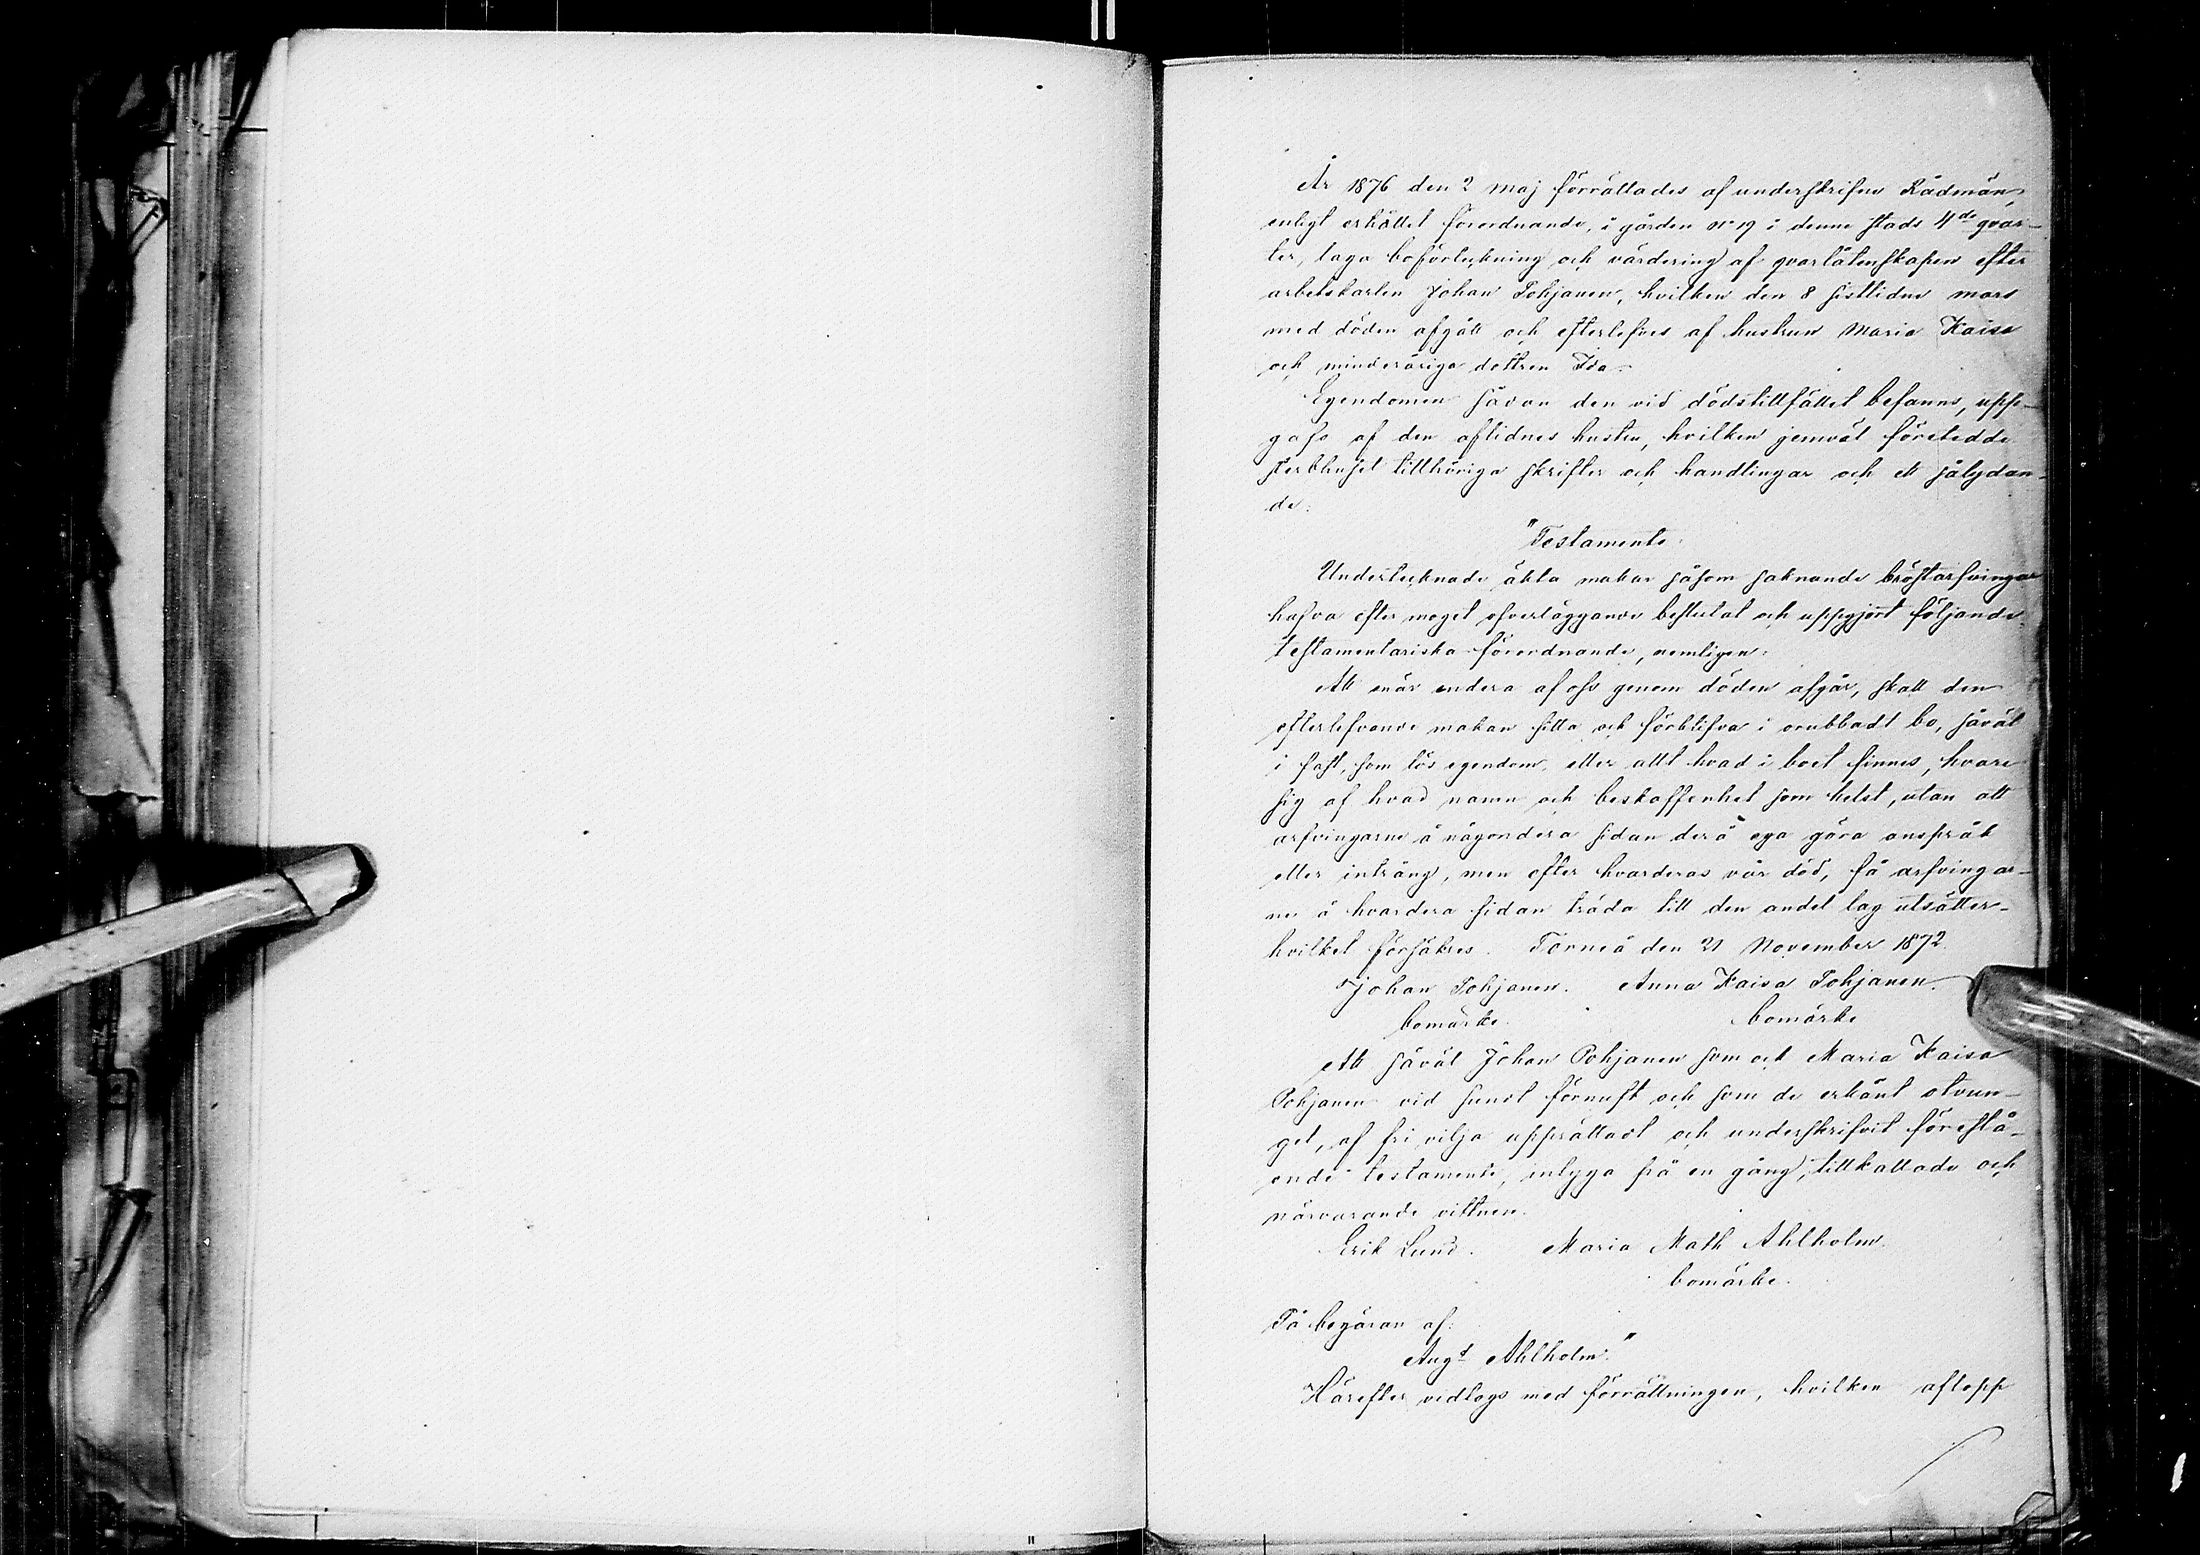 År 1876 den 2 maj förrättades af underskrifne Rådmän,
enligt erhållet förordnande, i gården No 19 i denne stads 4de qvar-
ter, laga boförteckning och värdering af qvarlåtenskapen efter
arbetskarlen Johan Pohjanen, hvilken den 8 sistlidne mars
med döden afgått och efterlefves af hustrun Maria Kaisa
och minderåriga dottren Ida.
Egendomen sådan den vid dödstillfället befanns, upp-
gafs af den aflidnes hustru, hvilken jemväl företedde
sterbhuset tillhöriga skrifter och handlingar och ett sålydan-
de:
"Testamente:
Undertecknade äkta makar såsom saknande bröstarfvingar
hafva efter moget öfverläggande beslutat och uppgjort följande
testamentariska förordnande, nemligen:
Att när endera af oss genom döden afgår, skall den
efterlefvande makan sitta och förblifva i orubbadt bo, såväl
i fast, som lös egendom, eller allt hvad i boet finnes, hvare
sig af hvad namn och beskaffenhet som helst, utan att
arfvingarne å någondera sidan derå ega göra anspråk
eller intrång, men efter hvarderas vår död, få arfvingar-
ne å hvardera sidan träda till den andel lag utsätter-
hvilket försäkres. Torneå den 21 November 1872.
Johan Pohjanen. Anna Kaisa Pohjanen.
bomärke. bomärke
Att såväl Johan Pohjanen som ock Maria Kaisa
Pohjanen vid sundt förnuft och som de erkänt otvun-
get, af fri vilja upprättadt och underskrifvit förestå-
ende testamente, intyga på en gång, tillkallade och
närvarande vittnen.
Erik Lund. Maria Math Ahlholm.
bomärke.
På begäran af:
Augt Ahlholm."
Härefter vidtogs med förrättningen, hvilken aflopp